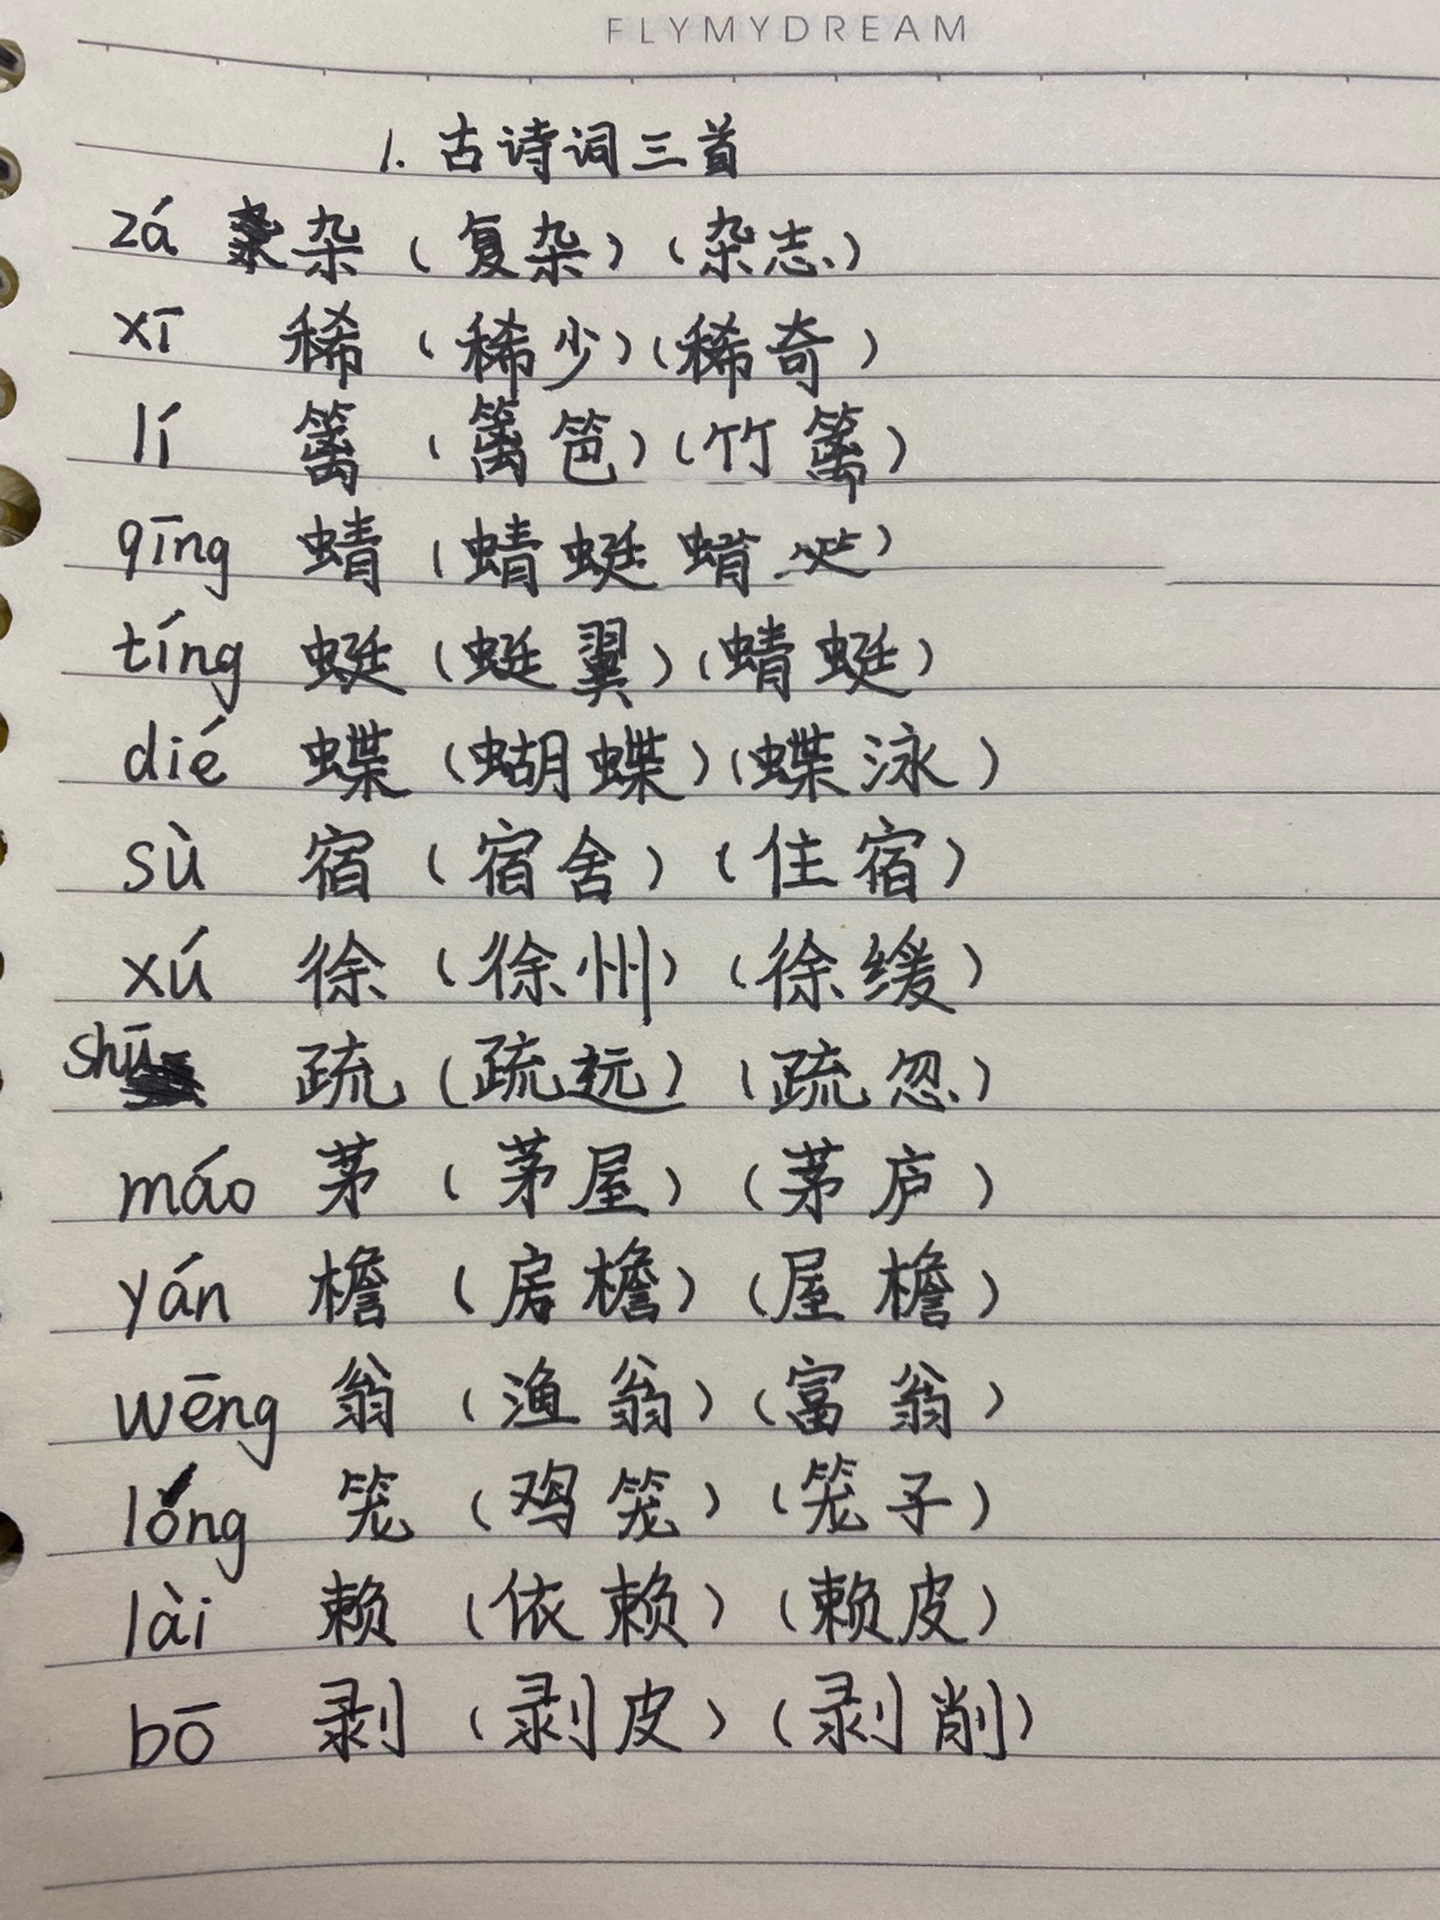 FLYMYDREAM
1. 古诗词三首
zá 杂 (复杂) (杂志)
xī 稀 (稀少) (稀奇)
lí 篱 (篱笆) (竹篱)
qīng 蜻 (蜻蜓
tíng 蜓 (蜓翼) (蜻蜓)
dié 蝶 (蝴蝶) (蝶泳)
sù 宿 (宿舍) (住宿)
xú 徐 (徐州) (徐缓)
shū 疏 (疏远) (疏忽)
máo 茅 (茅屋) (茅庐)
yán 檐 (房檐) (屋檐)
wēng 翁 (渔翁) (富翁)
lóng 笼 (鸡笼) (笼子)
lài 赖 (依赖) (赖皮)
bō 剥 (剥皮) (剥削)